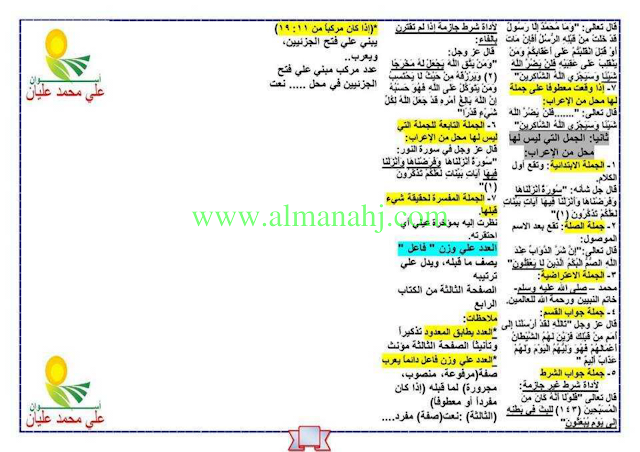 قال تعالى: "وَمَا مُحَمَّدٌ إِلَّا رَسُولٌ
قَدْ خَلَتْ مِنْ قَبْلِهِ الرُّسُلُ أَفَإِنْ مَاتَ
أَوْ قُتِلَ انْقَلَبْتُمْ عَلَى أَعْقَابِكُمْ وَمَنْ
يَنْقَلِبْ عَلَى عَقِبَيْهِ فَلَنْ يَضُرَّ اللَّهَ
شَيْئًا وَسَيَجْزِي اللَّهُ الشَّاكِرِينَ"
٧- إذا وقعت معطوفا على جملة
لها محل من الإعراب:
قال تعالى: ".......فَلَنْ يَضُرَّ اللَّهَ
شَيْئًا وَسَيَجْزِي اللَّهُ الشَّاكِرِينَ"
ثانيا: الجمل التي ليس لها
محل من الإعراب:
١- الجملة الابتدائية: وتقع أول
الكلام.
قال جل شأنه: "سُورَةٌ أَنْزَلْنَاهَا
وَفَرَضْنَاهَا وَأَنْزَلْنَا فِيهَا آيَاتٍ بَيِّنَاتٍ
لَعَلَّكُمْ تَذَكَّرُونَ (١)"
٢- جملة الصلة: تقع بعد الاسم
الموصول:
قال تعالى:"إِنَّ شَرَّ الدَّوَابِّ عِنْدَ
اللَّهِ الصُّمُّ الْبُكْمُ الَّذِينَ لَا يَعْقِلُونَ"
٣- الجملة الاعتراضية:
محمد – صلى الله عليه وسلم-
خاتم النبيين ورحمة الله للعالمين.
٤- جملة جواب القسم:
قال عز وجل "تَاللَّهِ لَقَدْ أَرْسَلْنَا إِلَى
أُمَمٍ مِنْ قَبْلِكَ فَزَيَّنَ لَهُمُ الشَّيْطَانُ
أَعْمَالَهُمْ فَهُوَ وَلِيُّهُمُ الْيَوْمَ وَلَهُمْ
عَذَابٌ أَلِيمٌ"
٥- جملة جواب الشرط
لأداة شرط غير جازمة:
قال تعالى: "فَلَوْلَا أَنَّهُ كَانَ مِنَ
الْمُسَبِّحِينَ (١٤٣) لَلَبِثَ فِي بَطْنِهِ
إِلَى يَوْمِ يُبْعَثُونَ"
لأداة شرط جازمة إذا لم تقترن
بالفاء:
قال عز وجل:
"وَمَنْ يَتَّقِ اللَّهَ يَجْعَلْ لَهُ مَخْرَجًا
(٢) وَيَرْزُقْهُ مِنْ حَيْثُ لَا يَحْتَسِبُ
وَمَنْ يَتَوَكَّلْ عَلَى اللَّهِ فَهُوَ حَسْبُهُ
إِنَّ اللَّهَ بَالِغُ أَمْرِهِ قَدْ جَعَلَ اللَّهُ لِكُلِّ
شَيْءٍ قَدْرًا"
٦- الجملة التابعة للجملة التي
ليس لها محل من الإعراب:
قال عز وجل في سورة النور:
"سُورَةٌ أَنْزَلْنَاهَا وَفَرَضْنَاهَا وَأَنْزَلْنَا
فِيهَا آيَاتٍ بَيِّنَاتٍ لَعَلَّكُمْ تَذَكَّرُونَ
(١)"
٧- الجملة المفسرة لحقيقة شيء
قبلها.
نظرت إليه بمؤخرة عيني أي
احتقرته.
العدد علي وزن " فاعل "
يصف ما قبله، ويدل علي
ترتيبه
الصفحة الثالثة من الكتاب
الرابع
ملاحظات:
*العدد يطابق المعدود تذكيراً
وتأنيثاً الصفحة الثالثة مؤنث
*العدد علي وزن فاعل دائما يعرب
صفة(مرفوعة، منصوب،
مجرورة) لما قبله (إذا كان
مفرداً أو معطوفا)
(الثالثة) :نعت(صفة) مفرد....
*(إذا كان مركبا من ١١: ١٩)
يبني علي فتح الجزئيين،
ويعرب..
عدد مركب مبني علي فتح
الجزئيين في محل ..... نعت
www.almanahj.com
أســوان
علي محمد عليان
أســوان
علي محمد عليان